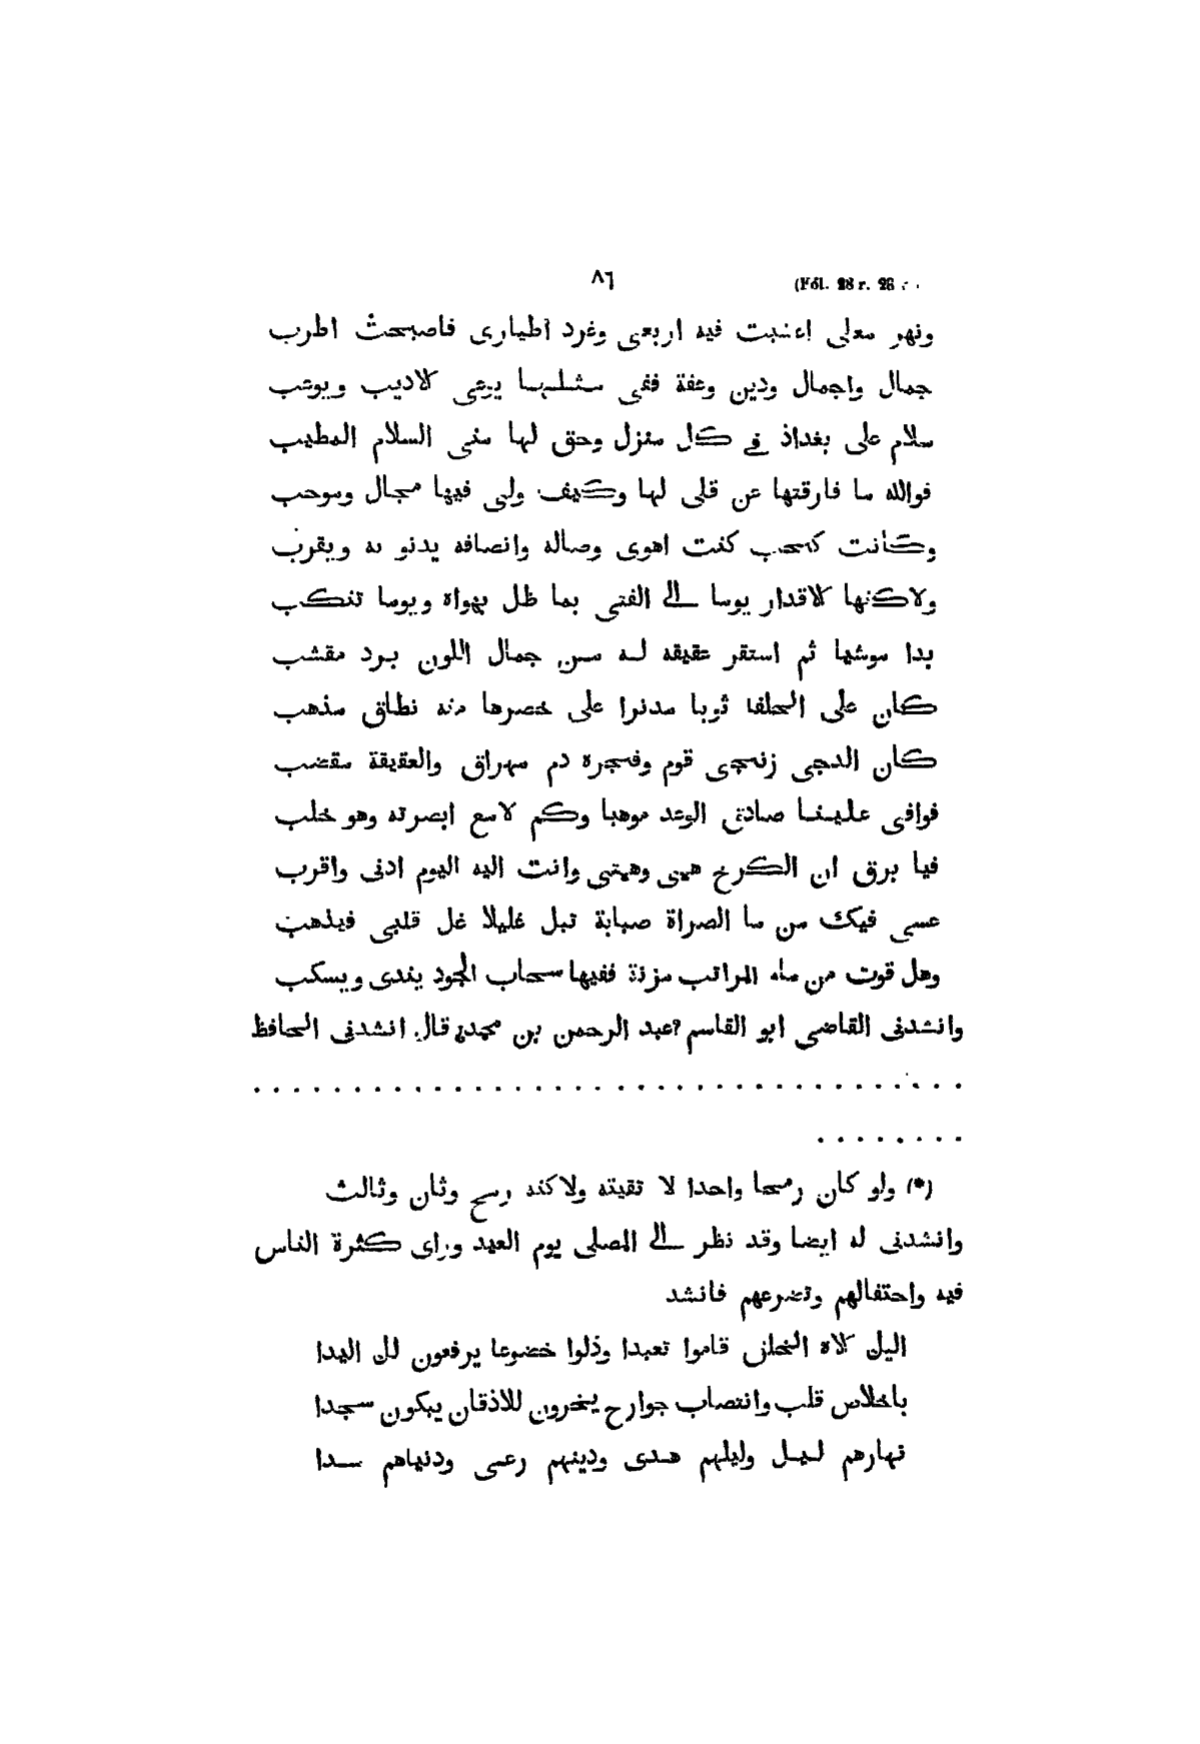 ٨٦ (Fól. 28 r.
ونهر معلى اعشبت فيه اربعى وغرد اطيارى فاصبحت اطرب
جمال واجمال ودين وعفة ففى مثلها يرعى كلاديب ويوعب
سلام على بغداذ فى كل منزل وحق لها منى السلام المطيب
فوالله ما فارقتها عن قلى لها وكيف ولى فيها مجال وموحب
وكانت كنحب كنت اهوى وصاله وانصافه يدنو به ويقرب
ولاكنها كلاقدار يوما الى الفتى بما ظل يهواه ويوما تنكب
بدا موشيا ثم استقر عقيقه له من جمال اللون برد مقشب
كان على الحلفا ثوبا مدنوا على خصرها منه نطاق مذهب
كان الدجى زنجى قوم وفجره دم مهراق والعقيقة مقضب
فوافى علينا صادق الوعد موهبا وكم لامع ابصرته وهو خلب
فيا برق ان الكرخ همى وهمتى وانت اليه اليوم ادنى واقرب
عسى فيك من ما الصراة صبابة تبل غليلا غل قلبى فيذهب
وهل قوت من ماء المراتب مزنة ففيها سحاب الجود يندى ويسكب
وانشدنى القاضى ابو القاسم عبد الرحمن بن محمد قال انشدنى الحافظ
. . . . . . . . . . . . . . . . . . . . . . . . . . . . . . . . . . .
. . . . . . . .
(*) ولو كان رمحا واحدا لا تقيته ولاكنه رمح وثان وثالث
وانشدنى له ايضا وقد نظر الى المصلى يوم العيد وراى كثرة الناس
فيه واحتفالهم وتضرعهم فانشد
اليك كلاه الخلق قاموا تعبدا وذلوا خضوعا يرفعون لك اليدا
باخلاص قلب وانتصاب جوارح يخرون للاذقان يبكون سجدا
نهارهم ليل وليلهم هدى ودينهم رعى ودنياهم سدا